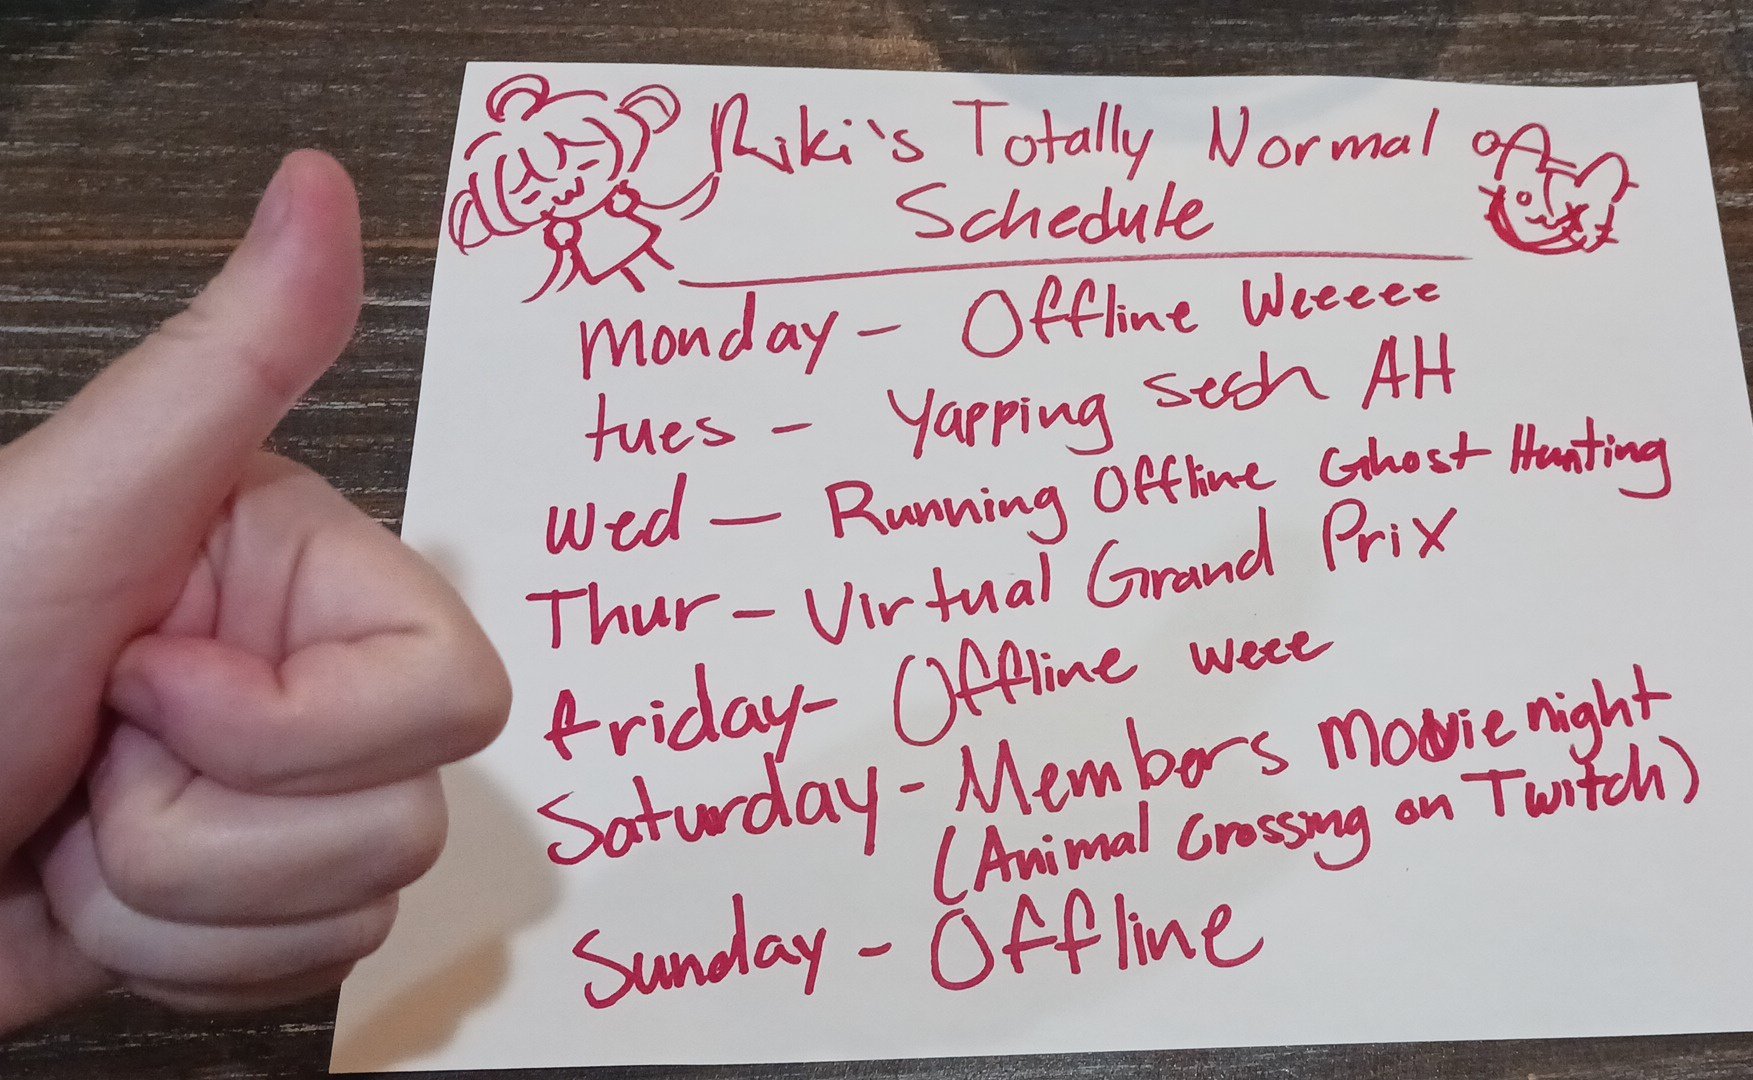 Riki's Totally Normal
Schedule
Monday - Offline Weeeee
tues - Yapping sesh AH
Wed - Running Offline Ghost Hunting
Thur - Virtual Grand Prix
friday - Offline weee
Saturday - Members Movie night
(Animal Crossing on Twitch)
Sunday - Offline